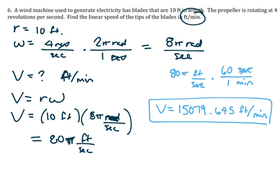 6. A wind machine used to generate electricity has blades that are 10 ft in length. The propeller is rotating at 4
revolutions per second. Find the linear speed of the tips of the blades in ft/min.
r = 10 ft.
ω = 4 rev/sec · 2π rad/1 rev = 8π rad/sec
V = ? ft/min
V = rω
V = (10 ft)(8π rad/sec)
= 80π ft/sec
80π ft/sec · 60 sec/1 min
V = 15079.645 ft/min